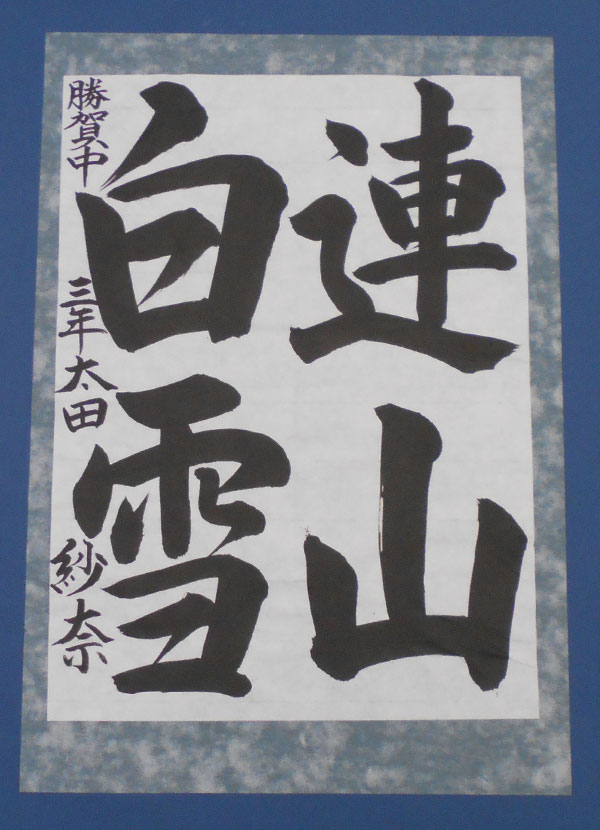 連山
白雪
勝賀中 三年 太田 紗奈